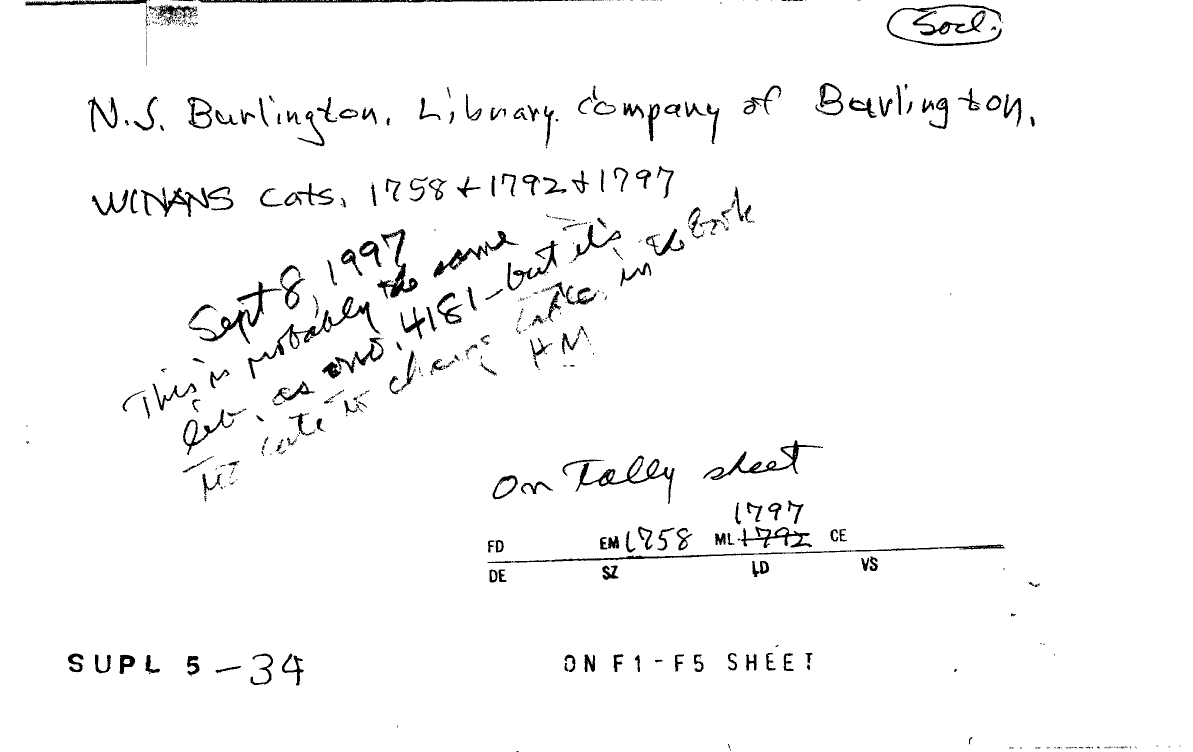 Socl.
N.J. Burlington. Library. Company of Burlington.
WINANS Cats. 1758 + 1792 + 1797
Sept 8, 1997
This is probably the same
lib. as no. 4181 – but it's
too late to change in the book
HM
On Tally sheet
1797
FD EM 1758 ML 1792 CE
DE SZ LD VS
SUPL 5 – 34 ON F1-F5 SHEET